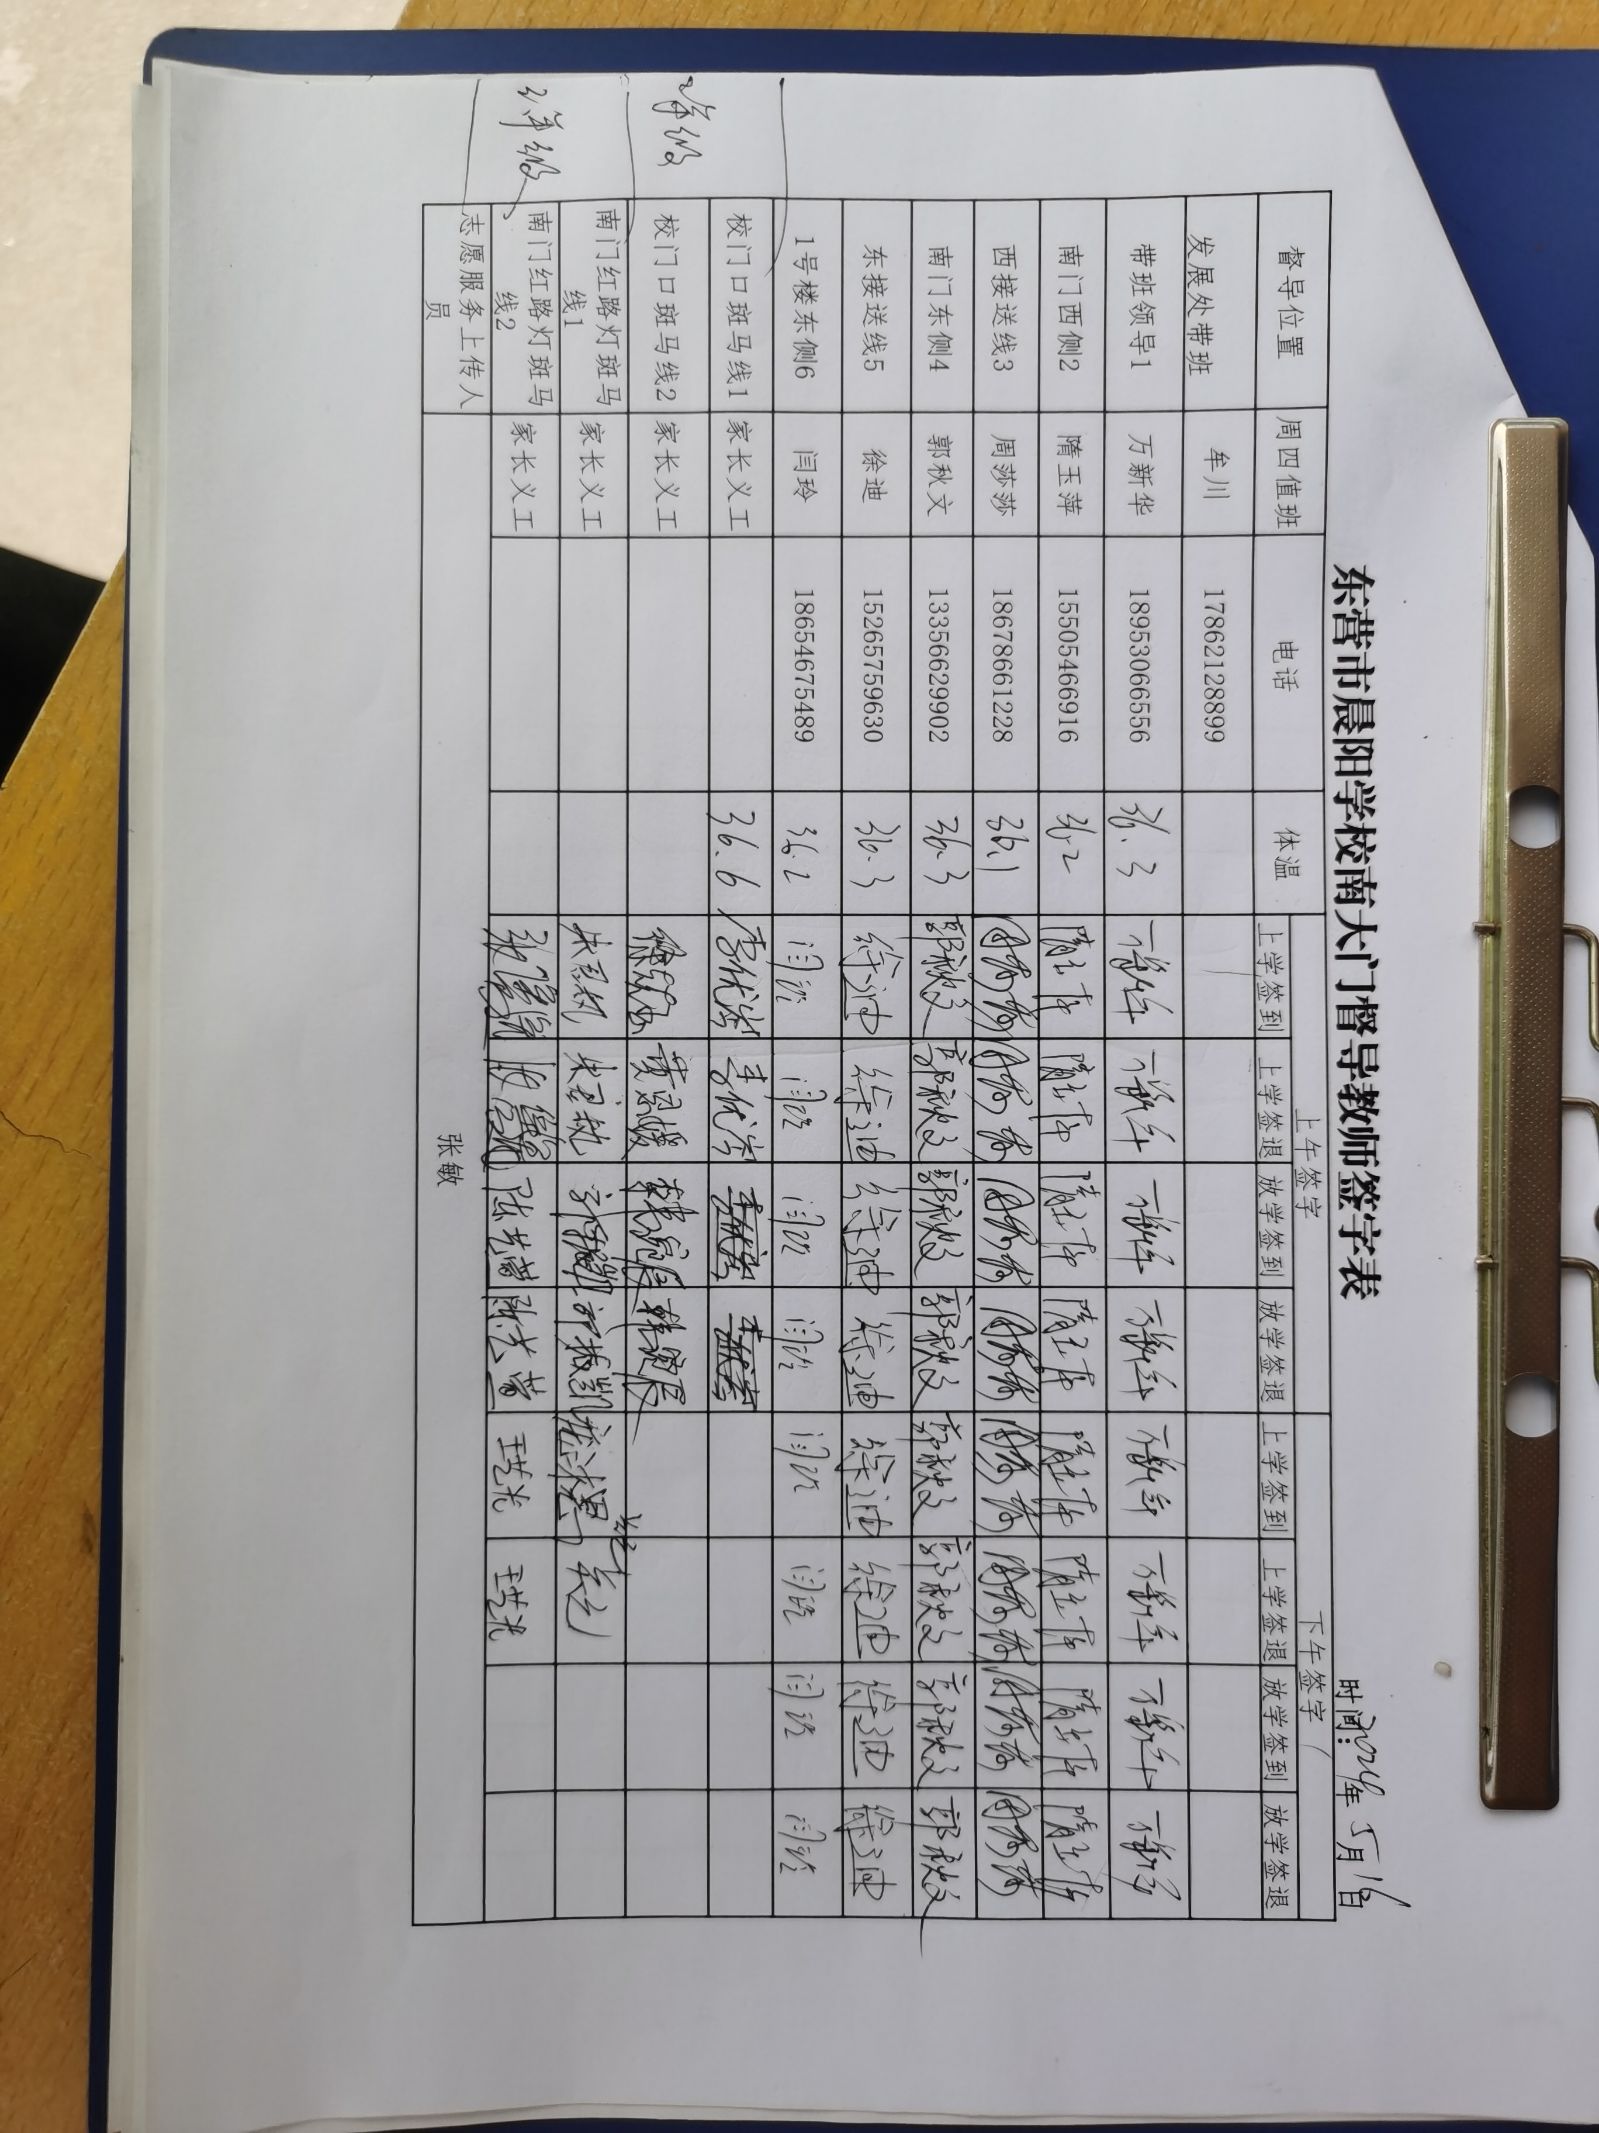 东营市晨阳学校南大门督导教师签字表
时间:2024年5月16日
督导位置 周四值班 电话 体温 上午签字 下午签字
上学签到 上学签退 放学签到 放学签退 上学签到 上学签退 放学签到 放学签退
发展处带班 牟川 17862128899
带班领导1 万新华 18953066556 36.3 万新华 万新华 万新华 万新华 万新华 万新华 万新华 万新华
南门西侧2 隋玉萍 15505466916 36.2 隋玉萍 隋玉萍 隋玉萍 隋玉萍 隋玉萍 隋玉萍 隋玉萍 隋玉萍
西接送线3 周莎莎 18678661228 36.1 周莎莎 周莎莎 周莎莎 周莎莎 周莎莎 周莎莎 周莎莎 周莎莎
南门东侧4 郭秋文 13356629902 36.3 郭秋文 郭秋文 郭秋文 郭秋文 郭秋文 郭秋文 郭秋文 郭秋文
东接送线5 徐迪 15265759630 36.3 徐迪 徐迪 徐迪 徐迪 徐迪 徐迪 徐迪 徐迪
1号楼东侧6 闫玲 18654675489 36.2 闫玲 闫玲 闫玲 闫玲 闫玲 闫玲 闫玲 闫玲
校门口斑马线1 家长义工 36.6
校门口斑马线2 家长义工
南门红路灯斑马线1 家长义工
南门红路灯斑马线2 家长义工 王艺光 王艺光
志愿服务上传人员 张敏